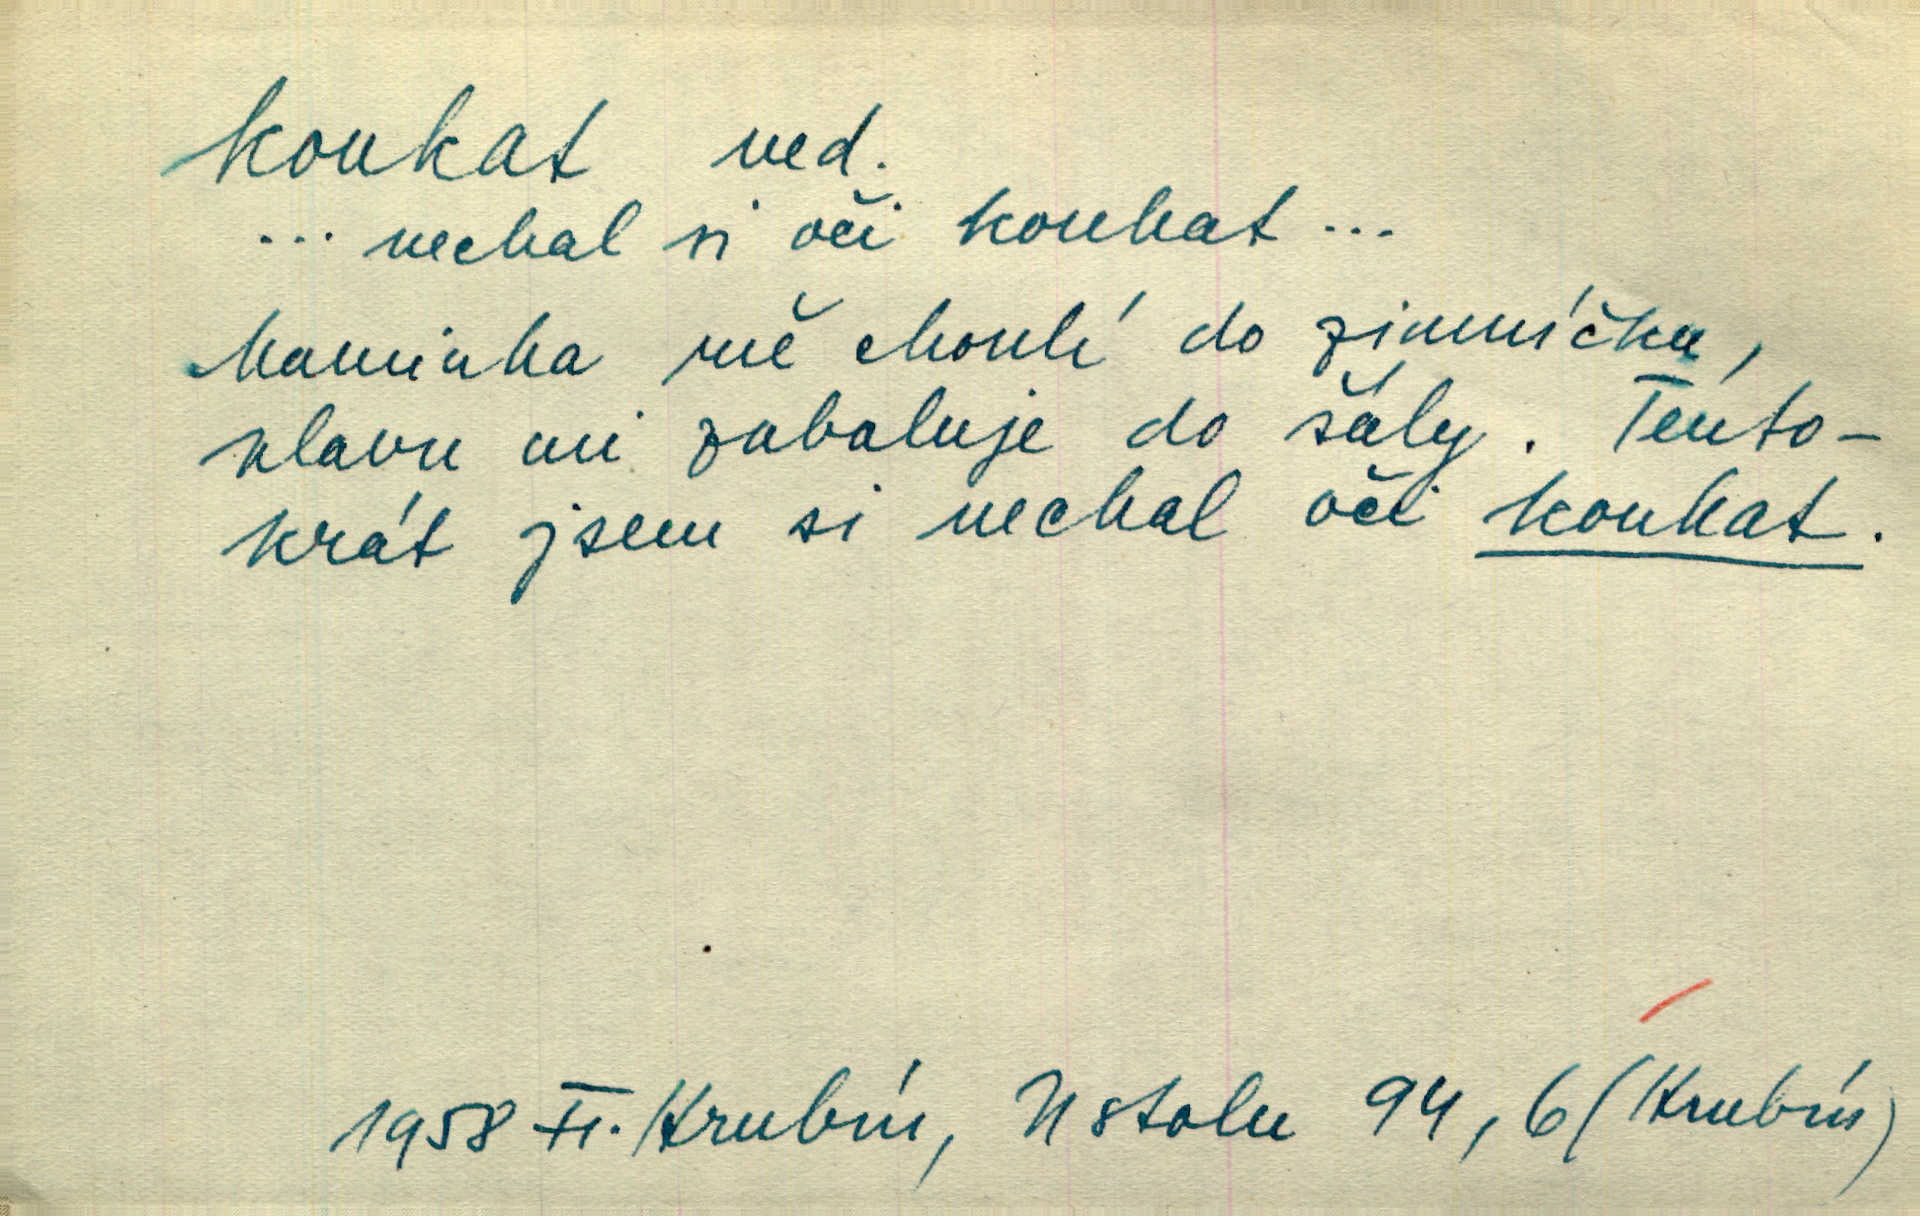 koukat ned.
... nechal si oči koukat ...
Maminka mě choulí do zimníčku,
hlavu mi zabaluje do šály. Tento-
krát jsem si nechal oči koukat.
1958 Fr. Hrubín, U stolu 94, 6 (Hrubín)